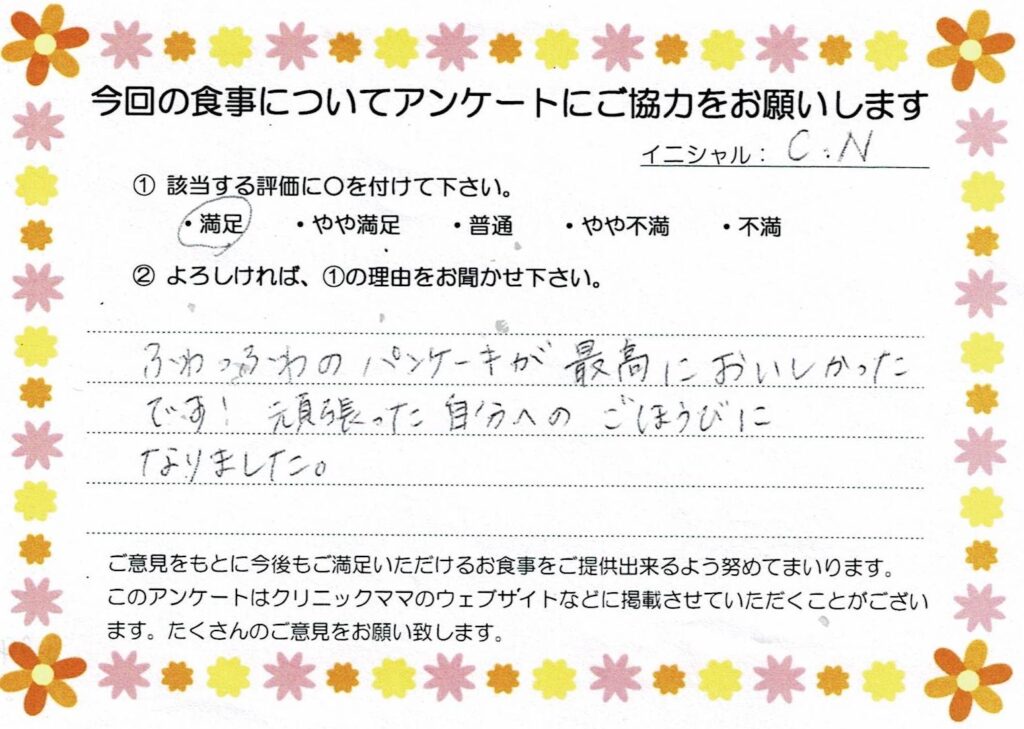 今回の食事についてアンケートにご協力をお願いします
イニシャル： C.N
① 該当する評価に〇を付けて下さい。
・満足 ・やや満足 ・普通 ・やや不満 ・不満
② よろしければ、①の理由をお聞かせ下さい。
ふわっふわのパンケーキが最高においしかった
です！ 頑張った自分へのごほうびに
なりました。
ご意見をもとに今後もご満足いただけるお食事をご提供出来るよう努めてまいります。
このアンケートはクリニックママのウェブサイトなどに掲載させていただくことがござい
ます。たくさんのご意見をお願い致します。